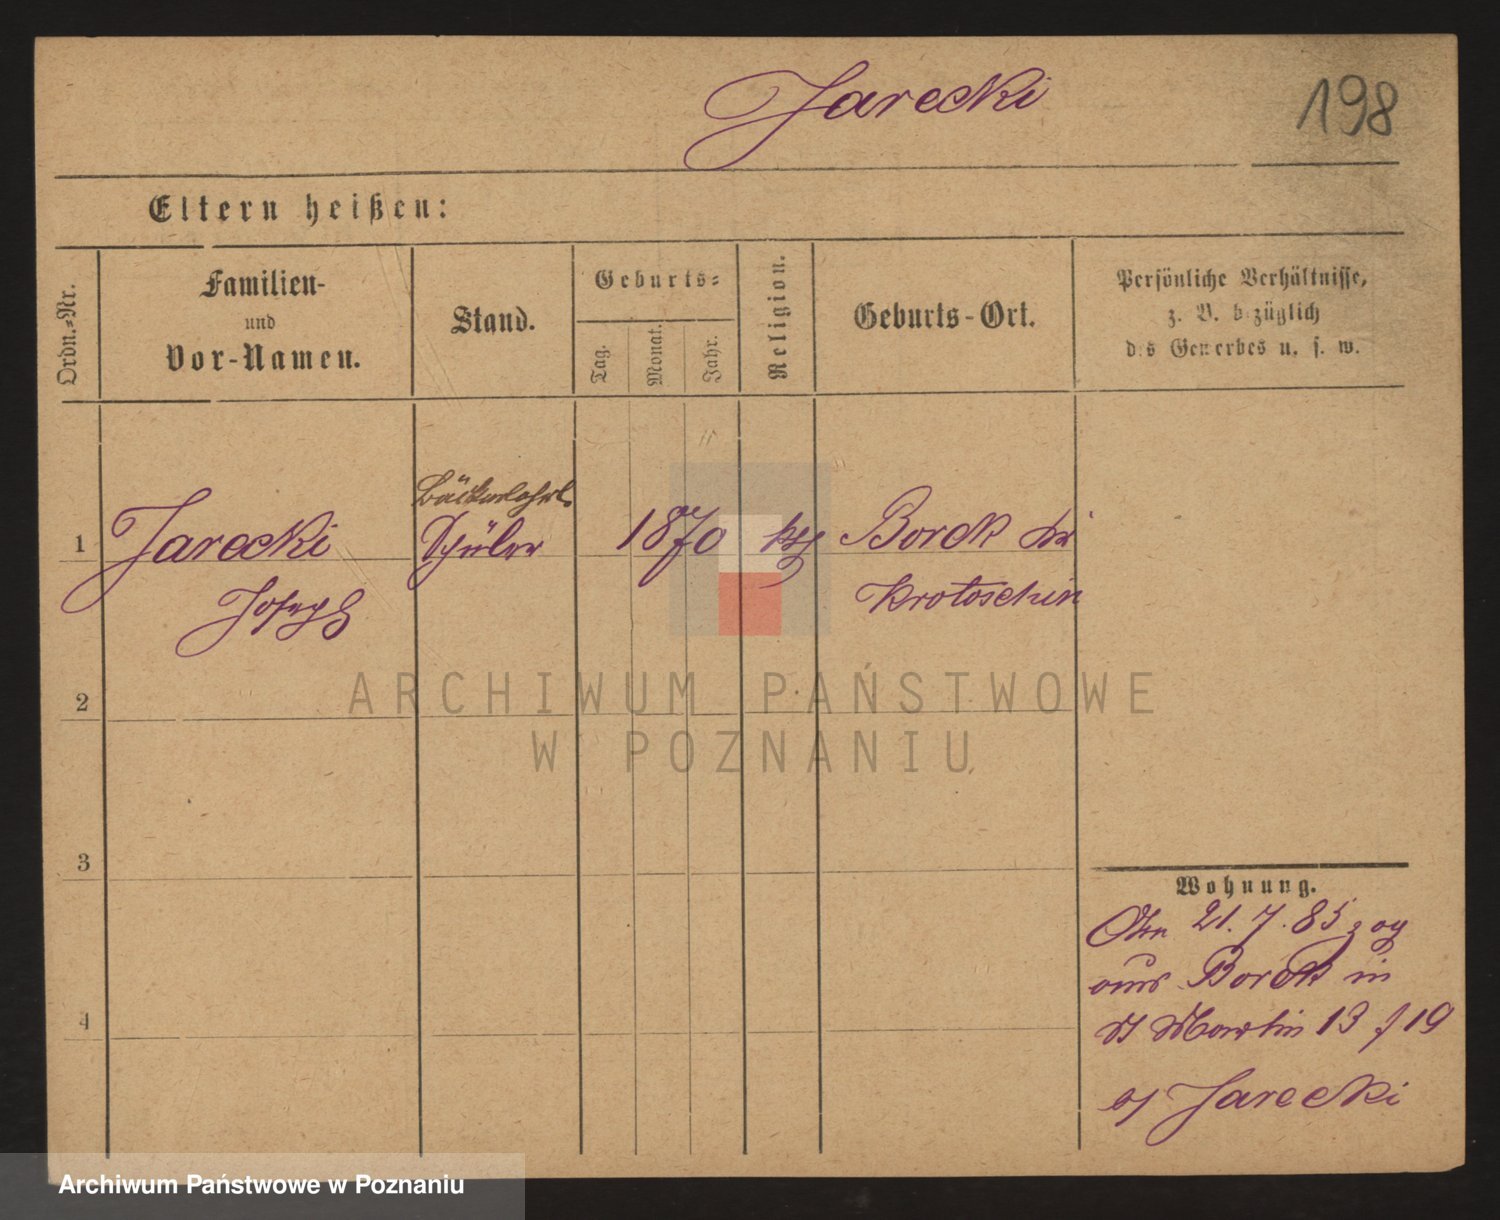 Jarecki
198
Eltern heißen:
Ordn.=Nr.
Familien-
und
Vor-Namen.
Stand.
Geburts=
Tag.
Monat.
Jahr.
Religion.
Geburts-Ort.
Persönliche Verhältnisse,
z. B. bezüglich
des Gewerbes u. s. w.
Bäckerlehrl.
1 Jarecki Schüler 1870 kth Borek Kr
Joseph Krotoschin
2
3
4
Wohnung.
Am 21. 7. 85 zog
aus Borek in
St Martin 13 f 19
b/ Jarecki
ARCHIWUM PAŃSTWOWE
W POZNANIU
Archiwum Państwowe w Poznaniu